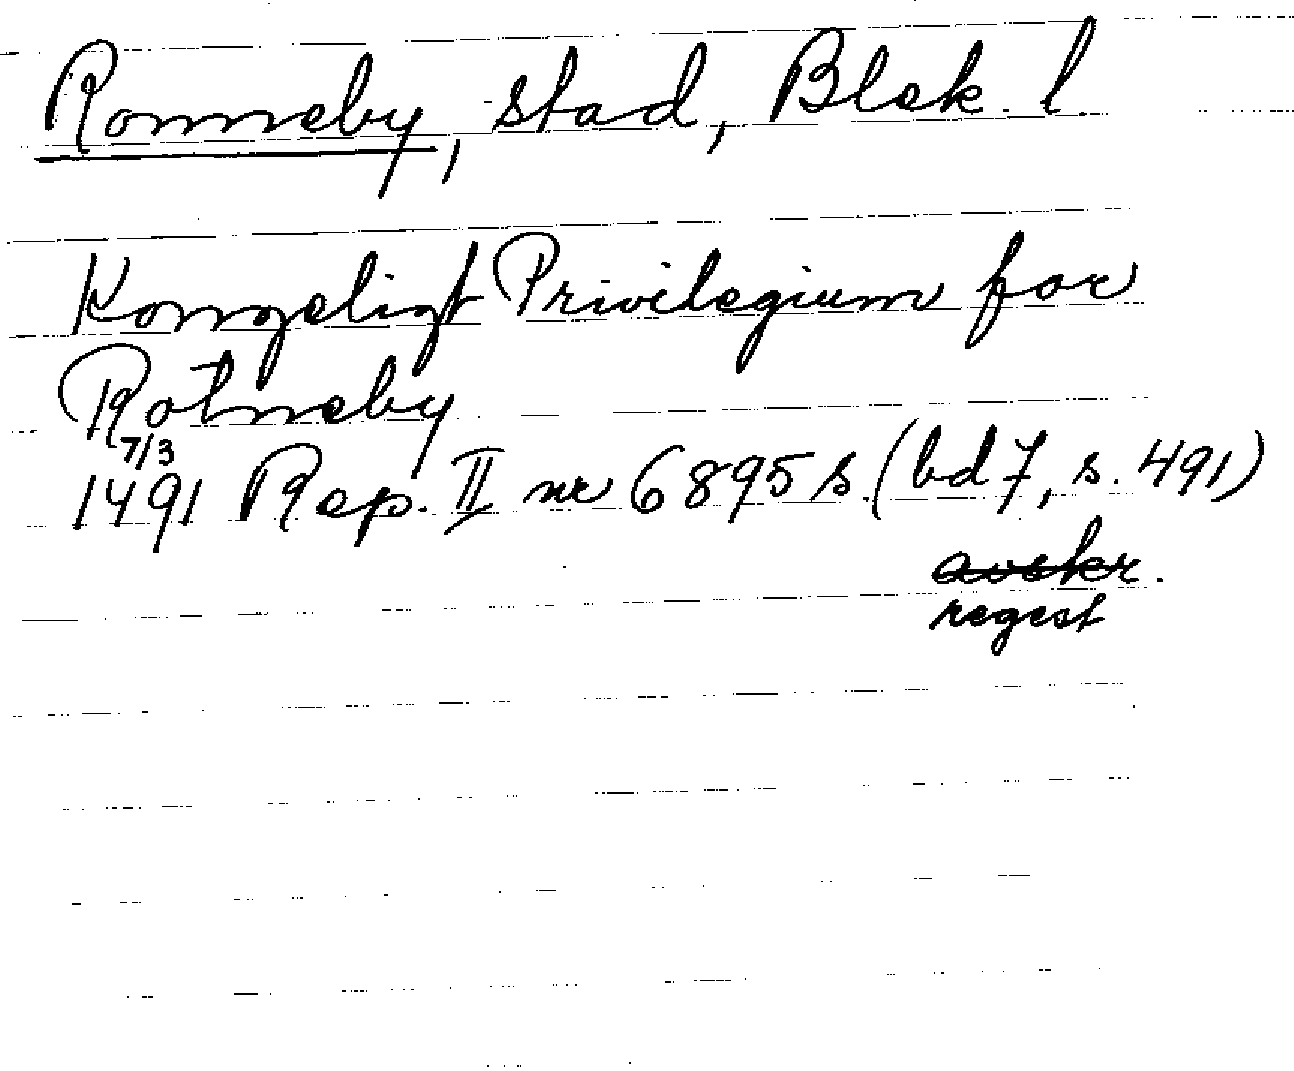 Ronneby, stad, Blek. l
Kongeligt Privilegium for
Rotneby
7/3
1491 Rep. II nr 6895 s (bd 7, s. 491)
avskr.
regest